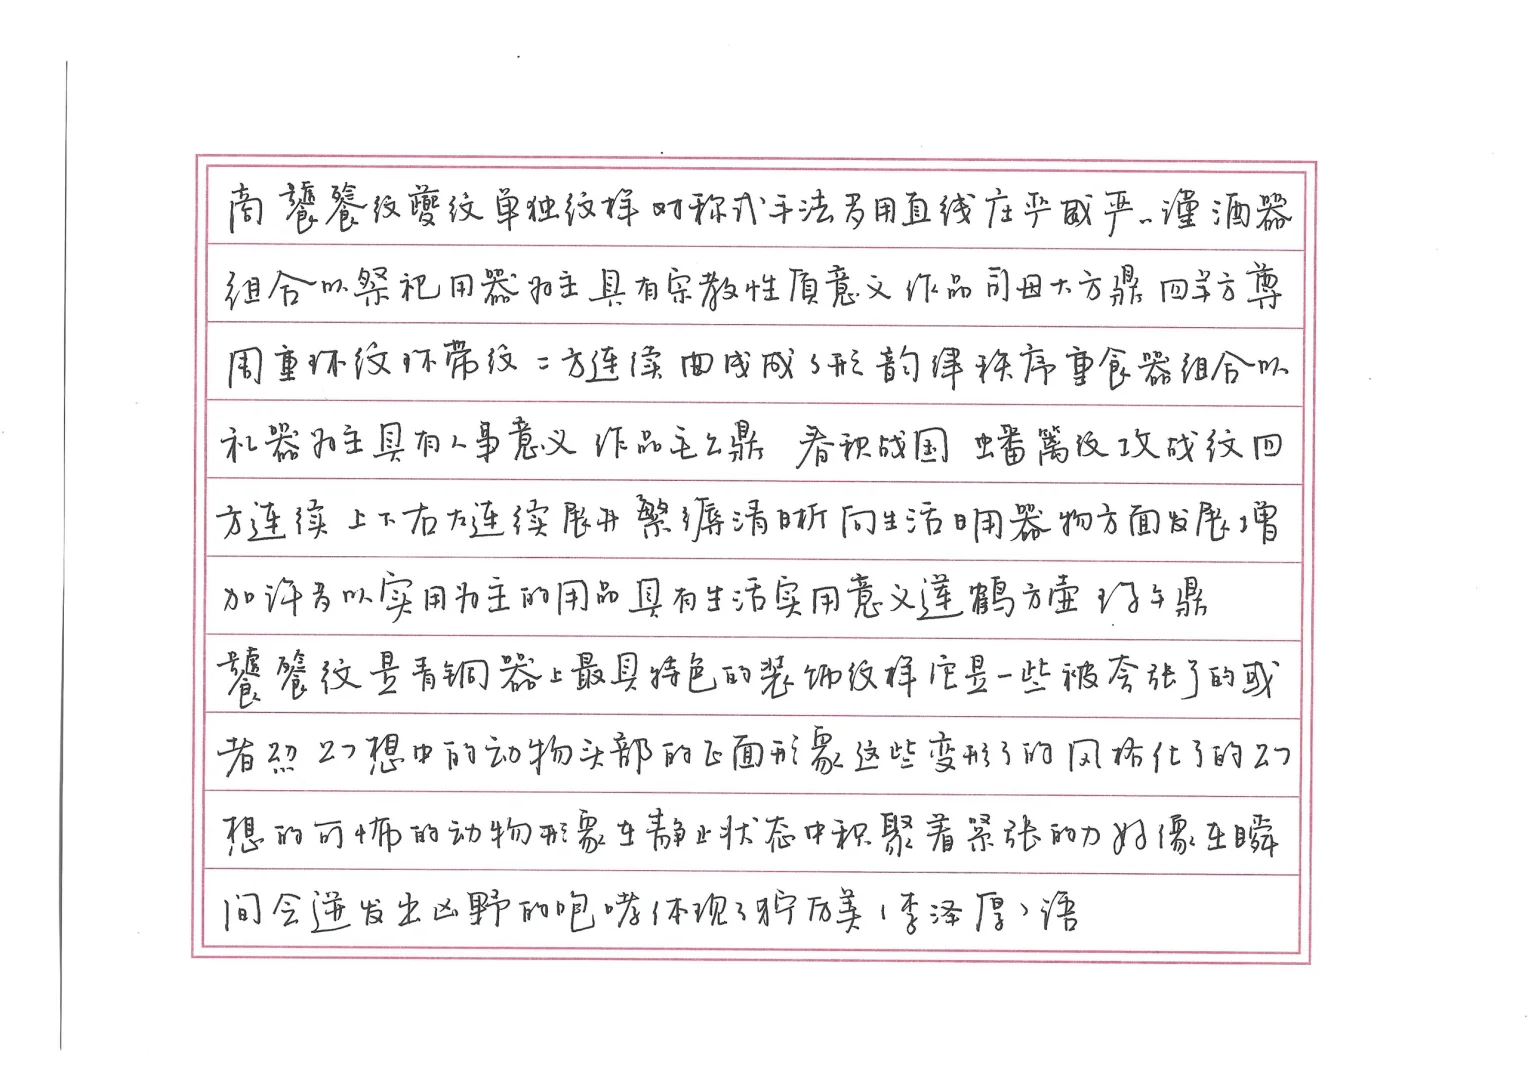 商饕餮纹夔纹单独纹样对称式手法多用直线庄严威严..谨酒器
组合以祭祀用器为主具有宗教性质意义作品司母大方鼎四羊方尊
周重环纹环带纹二方连续曲线形韵律秩序重食器组合以
礼器为主具有人事意义作品毛公鼎 春秋战国 蟠螭纹攻战纹四
方连续上下右左连续展开繁缛清晰向生活日用器物方面发展增
加许多以实用为主的用品具有生活实用意义莲鹤方壶 鼎
饕餮纹是青铜器上最具特色的装饰纹样它是一些被夸张了的或
者幻想中的动物头部的正面形象这些变形了的风格化了的幻
想的可怖的动物形象在静止状态中积聚着紧张的力好像在瞬
间会迸发出凶野的咆哮体现了狞厉美(李泽厚)语